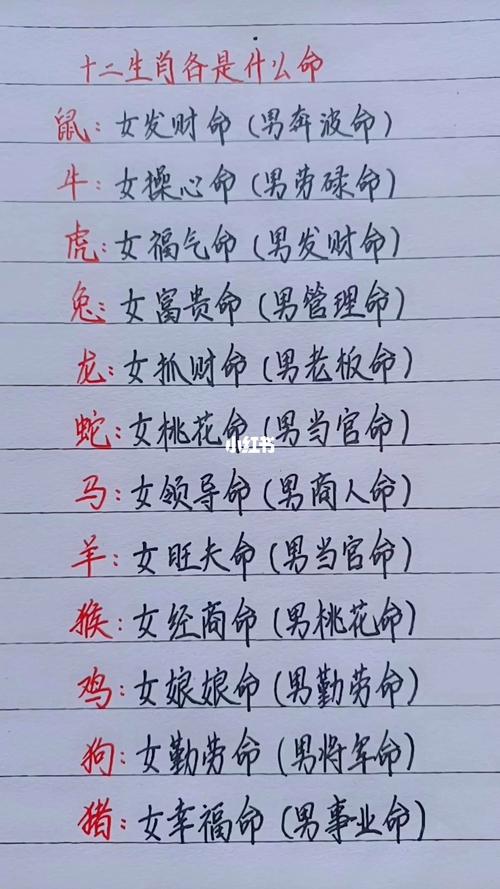 十二生肖各是什么命
鼠:女发财命(男奔波命)
牛:女操心命(男劳碌命)
虎:女福气命(男发财命)
兔:女富贵命(男管理命)
龙:女抓财命(男老板命)
蛇:女桃花命(男当官命)
小红书
马:女领导命(男商人命)
羊:女旺夫命(男当官命)
猴:女经商命(男桃花命)
鸡:女娘娘命(男勤劳命)
狗:女勤劳命(男将军命)
猪:女幸福命(男事业命)